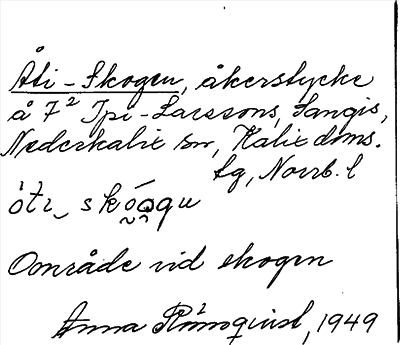 Åti-Skogen, åkerstycke
å 7² Ipi-Larssons, Sangis,
Nederkalix sn, Kalix doms.
lg, Norrb. l
skóogu
Område vid skogen
Anna Rönnquist, 1949